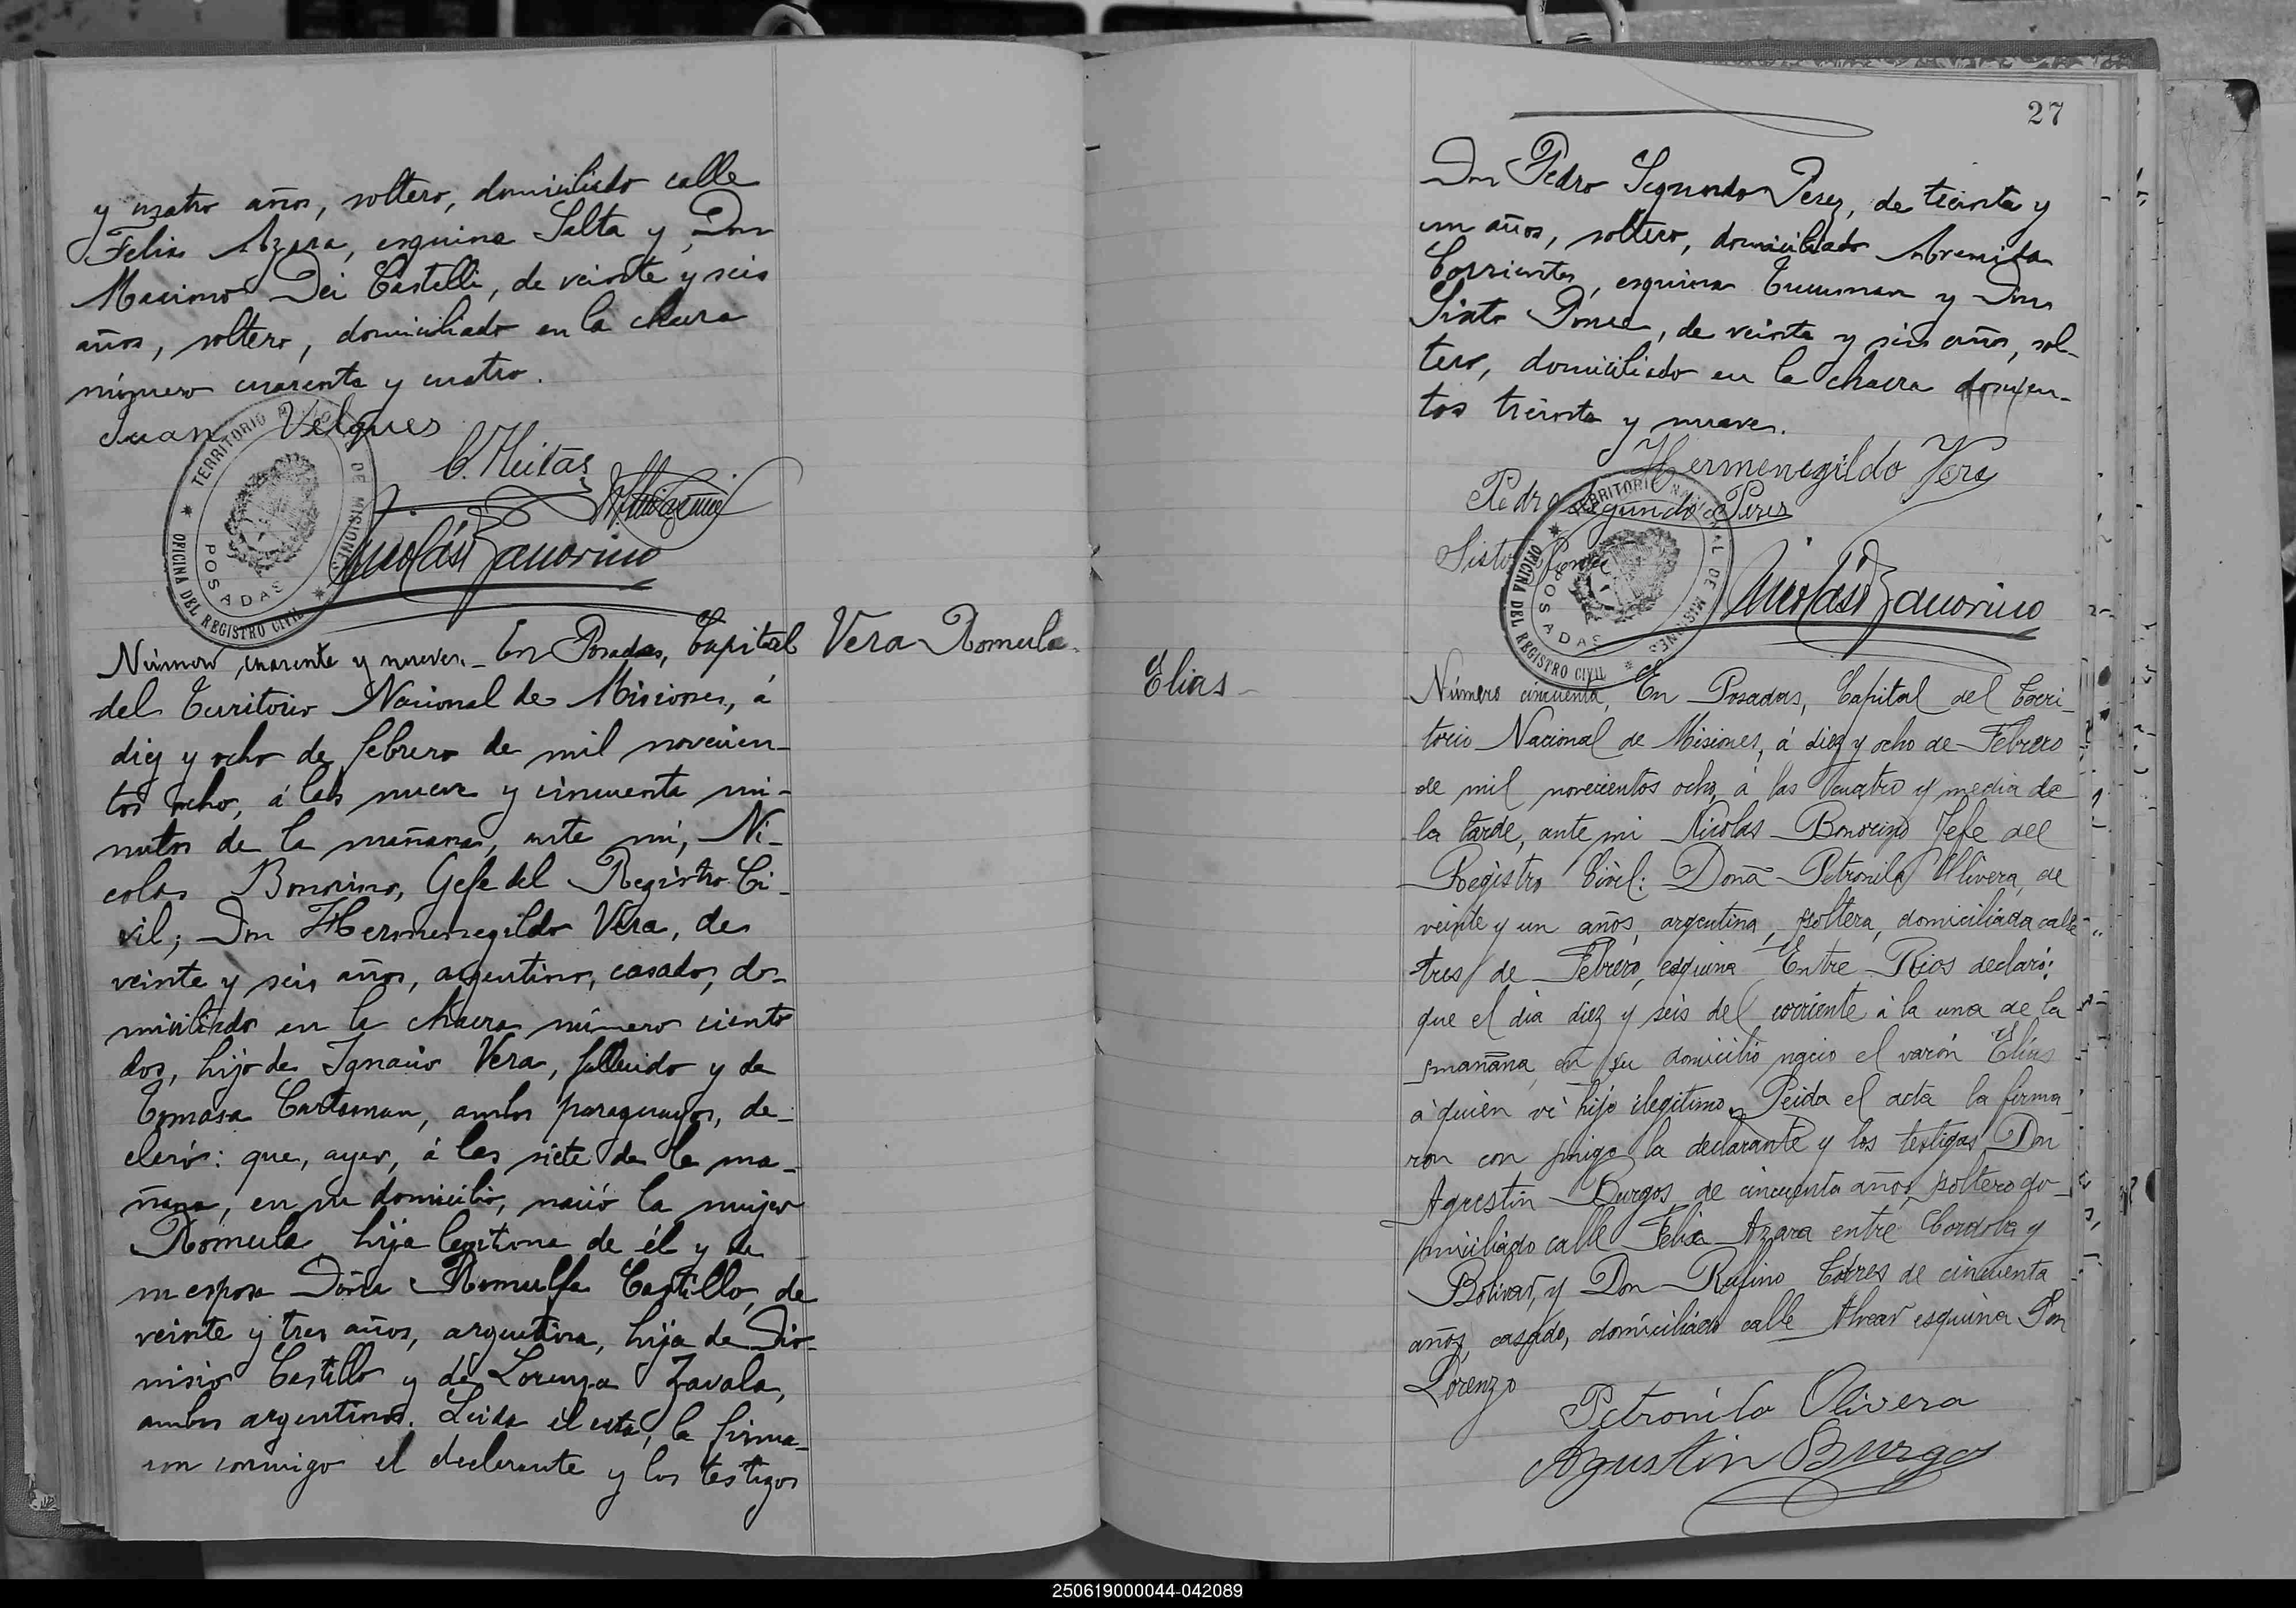 y cuatro años, soltero, domiciliado calle
Felix Azara, esquina Salta y Don
Macimo Dei Castelli, de veinte y seis
años, soltero, domiciliado en la chacra
número cuarenta y cuatro.
Juan Velques
TERRITORIO NACIONAL DE MISIONES
OFICINA DEL REGISTRO CIVIL
POSADAS
Nicolás Bonorino
Número cuarenta y nueve. En Posadas, Capital
Vera Romula
del Territorio Nacional de Misiones, á
diez y ocho de febrero de mil novecien-
tos ocho, á las nueve y cincuenta mi-
nutos de la mañana, ante mi, Ni-
colas Bonorino, Gefe del Registro Ci-
vil; Don Hermenegildo Vera, de
veinte y seis años, argentino, casado, do-
miciliado en la chacra número ciento
dos, hijo de Ignacio Vera, fallecido y de
Tomasa Cartaman, ambos paraguayos, de-
claró: que, ayer, á las siete de la ma-
ñana, en su domicilio, nació la mujer
Romula hija legitima de él y de
su esposa Doña Romulfa Castillo, de
veinte y tres años, argentina, hija de Dio-
nisio Castillo y de Lorenza Zavala,
ambos argentinos. Leida el acta, la firma-
ron conmigo el declarante y los testigos
27
Don Pedro Segundo Perez, de treinta y
un años, soltero, domiciliado Avenida
Corrientes, esquina Tucuman y Don
Sixto Ponce, de veinte y seis años, sol-
tero, domiciliado en la chacra doscien-
tos treinta y nueve.
Hermenegildo Vera
Pedro Segundo Perez
Sisto Ponce
TERRITORIO NACIONAL DE MISIONES
OFICINA DEL REGISTRO CIVIL
POSADAS
Nicolás Bonorino
Elias
Número cincuenta, En Posadas, Capital del Terri-
torio Nacional de Misiones, á diez y ocho de Febrero
de mil novecientos ocho, á las cuatro y media de
la tarde, ante mi Nicolas Bonorino Jefe del
Registro Civil: Doña Petronila Olivera, de
veinte y un años, argentina, soltera, domiciliada calle
tres de Febrero, esquina Entre Rios declaró:
que el dia diez y seis del corriente á la una de la
mañana en su domicilio nacio el varón Elías
á quien vi hijo ilegitimo. Leida el acta la firma-
ron con migo la declarante y los testigos Don
Agustin Burgos de cincuenta años, soltero do-
miciliado calle Felix Azara entre Cordoba y
Bolivar, y Don Rufino Torres de cincuenta
años, casado, domiciliado calle Alvear esquina San
Lorenzo
Petronila Olivera
Agustin Burgos
250619000044-042089